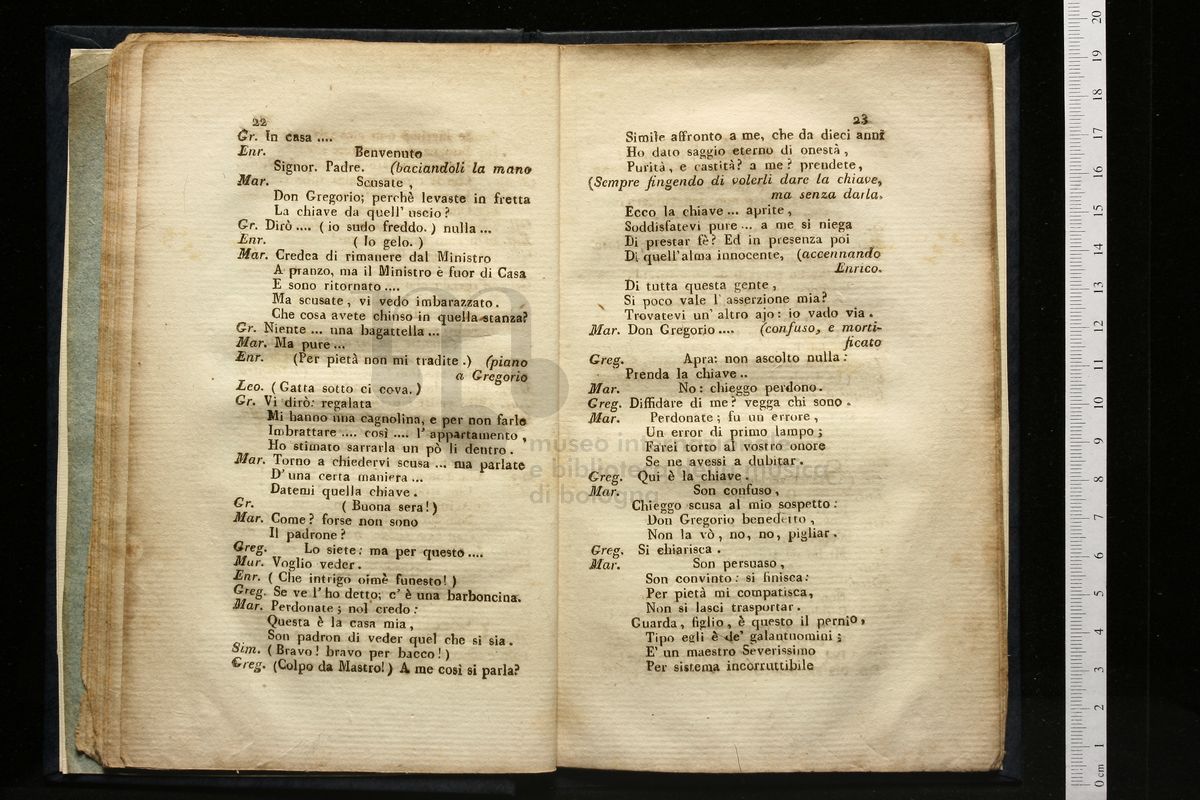 22
Gr. In casa ....
Enr. Benvenuto
Signor. Padre. (baciandoli la mano
Mar. Scusate ,
Don Gregorio; perchè levaste in fretta
La chiave da quell' uscio ?
Gr. Dirò .... ( io sudo freddo. ) nulla ...
Enr. ( Io gelo. )
Mar. Credea di rimanere dal Ministro
A pranzo, ma il Ministro è fuor di Casa
E sono ritornato ....
Ma scusate, vi vedo imbarazzato.
Che cosa avete chinso in quella stanza?
Gr. Niente ... una bagattella ...
Mar. Ma pure ...
Enr. (Per pietà non mi tradite .) (piano
a Gregorio
Leo. ( Gatta sotto ci cova. )
Gr. Vi dirò: regalata
Mi hanno una cagnolina, e per non farle
Imbrattare .... così .... l' appartamento ,
Ho stimato sarrarla un pò li dentro .
Mar. Torno a chiedervi scusa ... ma parlate
D' una certa maniera ...
Datemi quella chiave .
Gr. ( Buona sera! )
Mar. Come? forse non sono
Il padrone ?
Greg. Lo siete: ma per questo ....
Mar. Voglio veder .
Enr. ( Che intrigo oimè funesto! )
Greg. Se ve l' ho detto; c' è una barboncina.
Mar. Perdonate ; nol credo :
Questa è la casa mia ,
Son padron di veder quel che si sia .
Sim. ( Bravo! bravo per bacco! )
Greg. (Colpo da Mastro!) A me così si parla?
23
Simile affronto a me, che da dieci anni
Ho dato saggio eterno di onestà ,
Purità , e castità? a me ? prendete ,
(Sempre fingendo di volerli dare la chiave,
ma senza darla.
Ecco la chiave ... aprite ,
Soddisfatevi pure ... a me si niega
Di prestar fè? Ed in presenza poi
Di quell'alma innocente, (accennando
Enrico.
Di tutta questa gente ,
Si poco vale l' asserzione mia?
Trovatevi un' altro ajo: io vado via .
Mar. Don Gregorio .... (confuso, e morti-
ficato
Greg. Apra: non ascolto nulla :
Prenda la chiave ..
Mar. No: chieggo perdono .
Greg. Diffidare di me? vegga chi sono .
Mar. Perdonate ; fu un errore ,
Un error di primo lampo ;
Farei torto al vostro onore
Se ne avessi a dubitar .
Greg. Qui è la chiave .
Mar. Son confuso ,
Chieggo scusa al mio sospetto :
Don Gregorio benedetto ,
Non la vò , no, no, pigliar .
Greg. Si chiarisca .
Mar. Son persuaso ,
Son convinto: si finisca:
Per pietà mi compatisca,
Non si lasci trasportar .
Guarda, figlio, è questo il pernio,
Tipo egli è de' galantuomini ;
E' un maestro Severissimo
Per sistema incorruttibile
museo internazionale
e biblioteca della musica
di bologna
1 cm 2 3 4 5 6 7 8 9 10 11 12 13 14 15 16 17 18 19 20